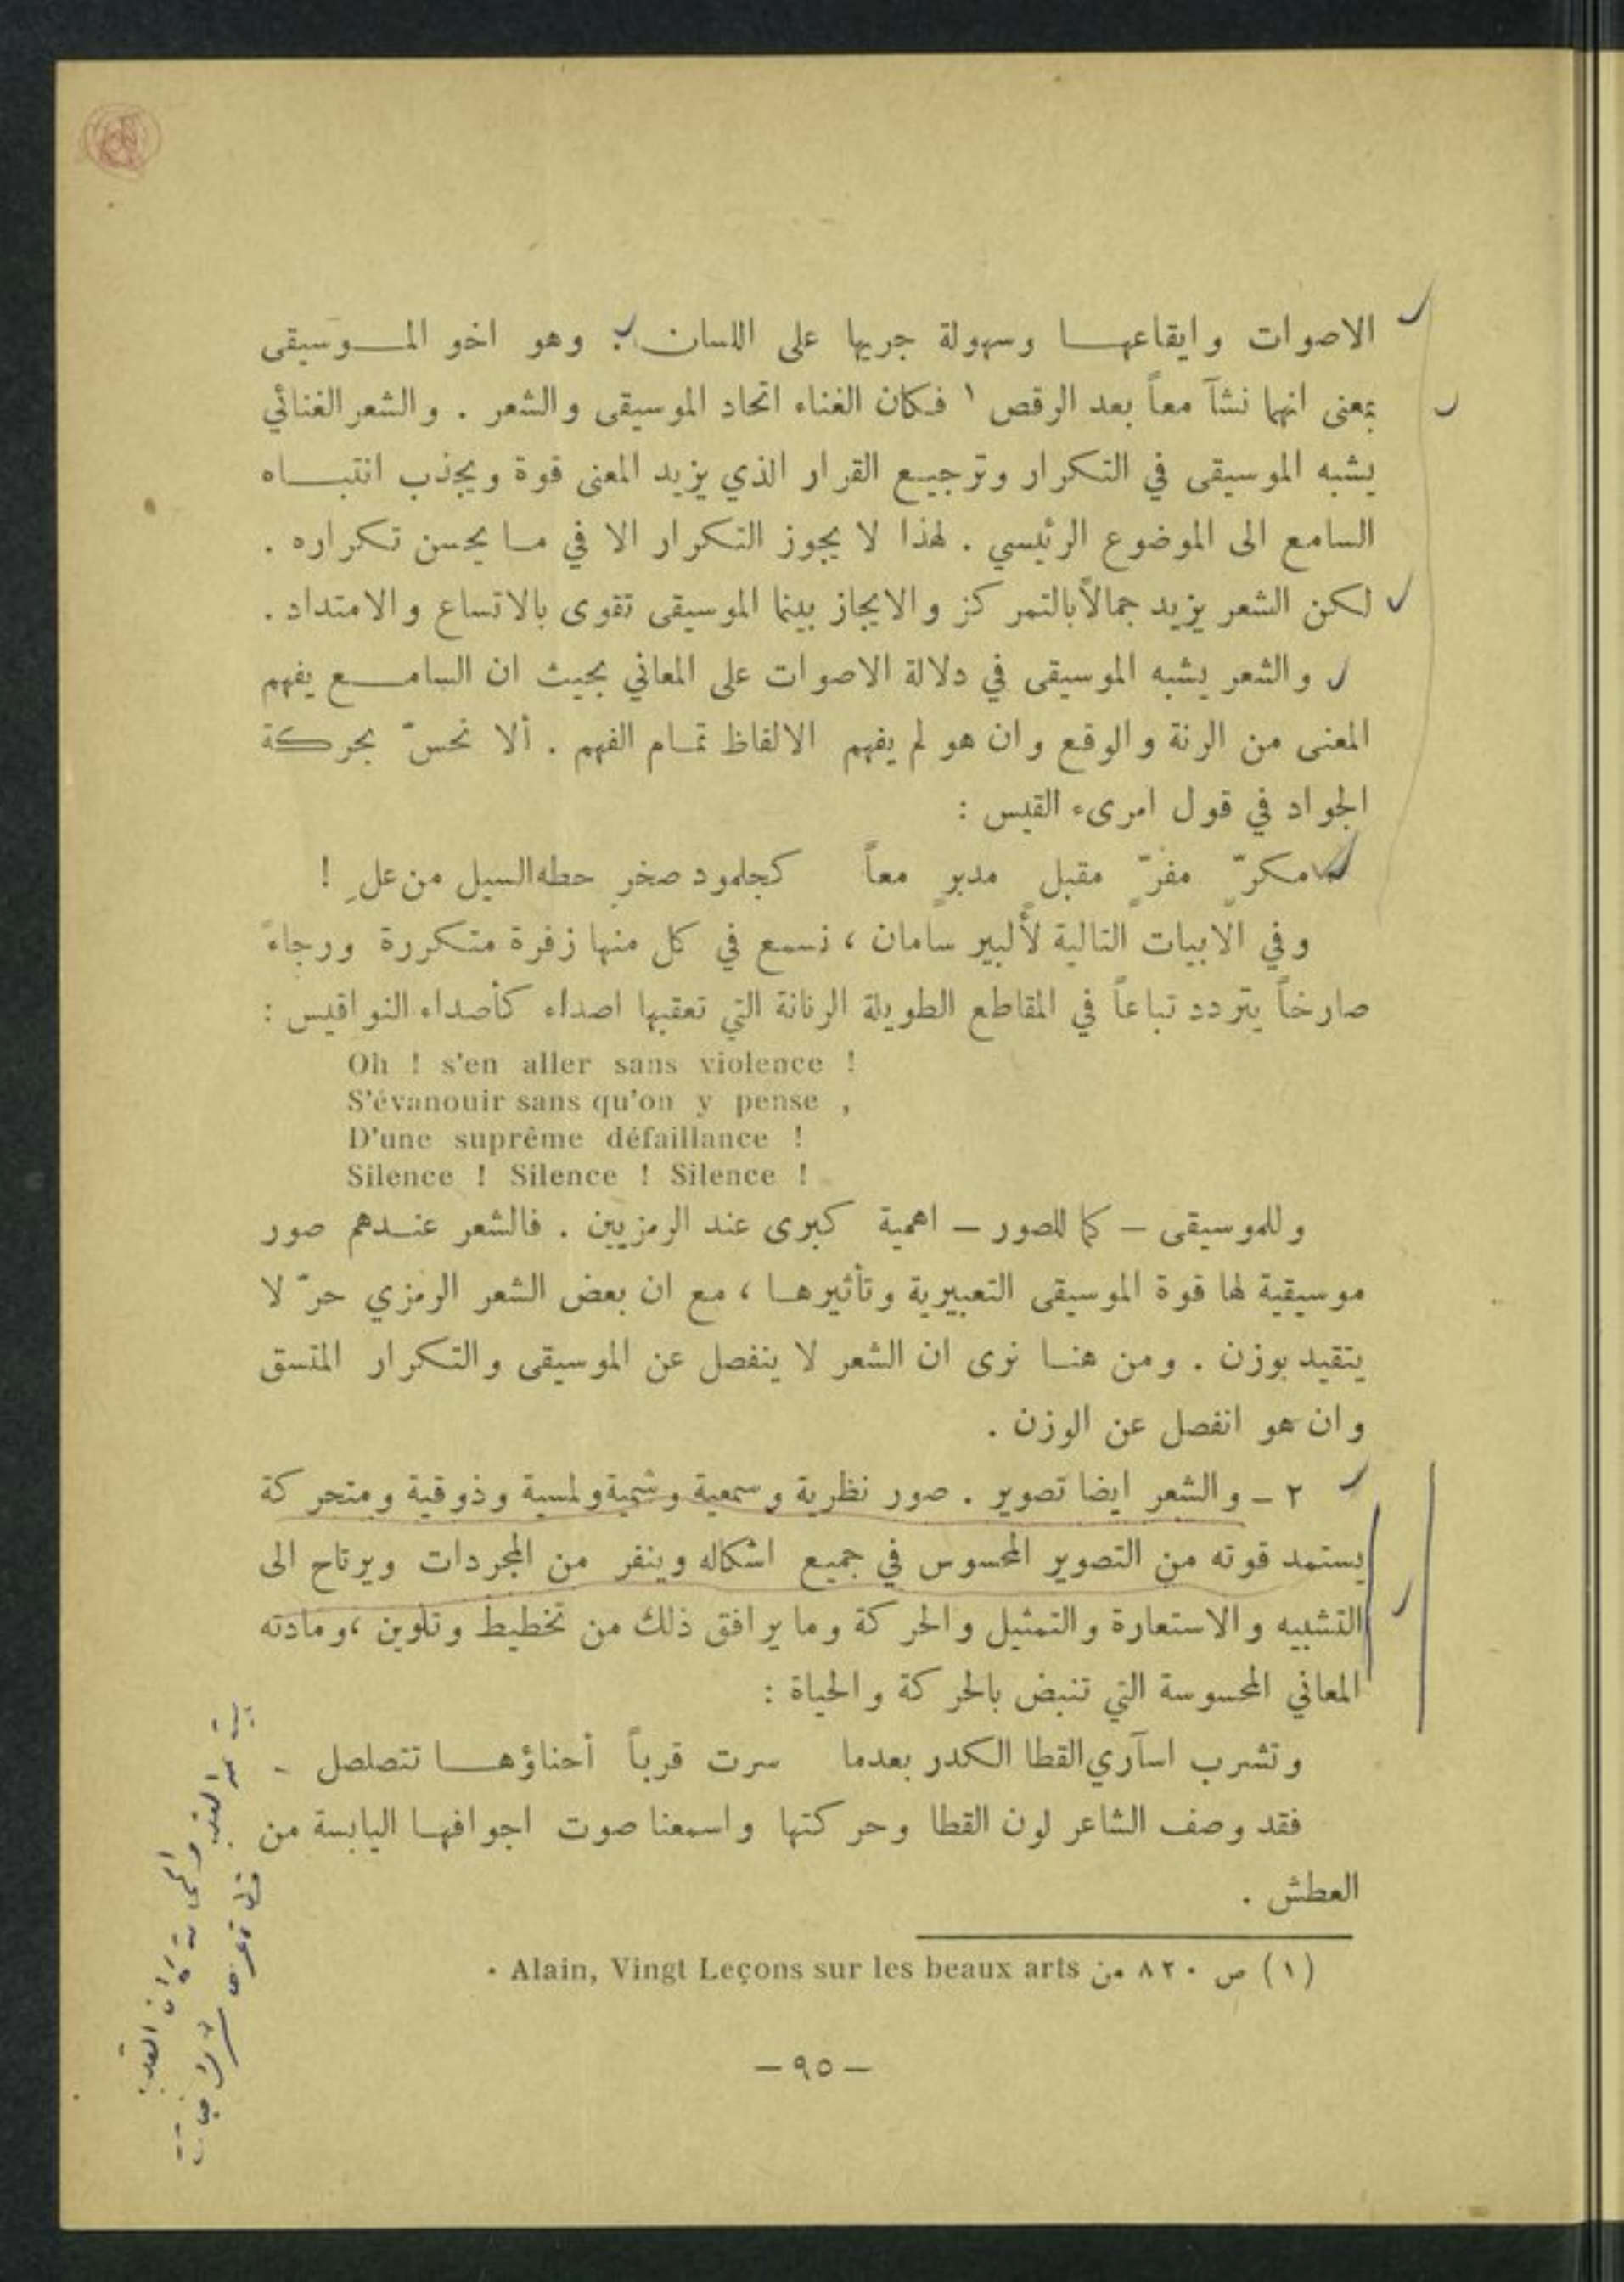 الاصوات وايقاعها وسهولة جريها على اللسان . وهو اخو الموسيقى
بمعنى انهما نشآ معاً بعد الرقص ١ فكان الغناء اتحاد الموسيقى والشعر . والشعر الغنائي
يشبه الموسيقى في التكرار وترجيع القرار الذي يزيد المعنى قوة ويجذب انتباه
السامع الى الموضوع الرئيسي . لهذا لا يجوز التكرار الا في ما يحسن تكراره .
لكن الشعر يزيد جمالاً بالتمركز والايجاز بينما الموسيقى تقوى بالاتساع والامتداد .
والشعر يشبه الموسيقى في دلالة الاصوات على المعاني بحيث ان السامع يفهم
المعنى من الرنة والوقع وان هو لم يفهم الالفاظ تمام الفهم . ألا نحسّ بحركة
الجواد في قول امرىء القيس :
مكرّ مفرّ مقبل مدبر معاً كجلمود صخر حطه السيل من علِ !
وفي الابيات التالية لألبير سامان ، نسمع في كل منها زفرة متكررة ورجاءً
صارخاً يتردد تباعاً في المقاطع الطويلة الرنانة التي تعقبها اصداء كأصداء النواقيس :
Oh ! s'en aller sans violence !
S'évanouir sans qu'on y pense ,
D'une suprême défaillance !
Silence ! Silence ! Silence !
وللموسيقى – كما للصور – اهمية كبرى عند الرمزيين . فالشعر عندهم صور
موسيقية لها قوة الموسيقى التعبيرية وتأثيرها ، مع ان بعض الشعر الرمزي حرّ لا
يتقيد بوزن . ومن هنا نرى ان الشعر لا ينفصل عن الموسيقى والتكرار المتسق
وان هو انفصل عن الوزن .
٢ – والشعر ايضا تصوير . صور نظرية وسمعية وشمية ولمسية وذوقية ومتحركة
يستمد قوته من التصوير المحسوس في جميع اشكاله وينفر من المجردات ويرتاح الى
التشبيه والاستعارة والتمثيل والحركة وما يرافق ذلك من تخطيط وتلوين ، ومادته
المعاني المحسوسة التي تنبض بالحركة والحياة :
وتشرب اسآري القطا الكدر بعدما سرت قرباً أحناؤها تتصلصل
فقد وصف الشاعر لون القطا وحركتها واسمعنا صوت اجوافها اليابسة من
العطش .
(١) ص ٨٢٠ من Alain, Vingt Leçons sur les beaux arts .
– ٩٥ –